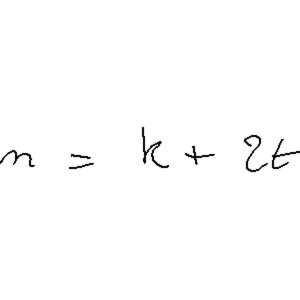 n = k + 2t